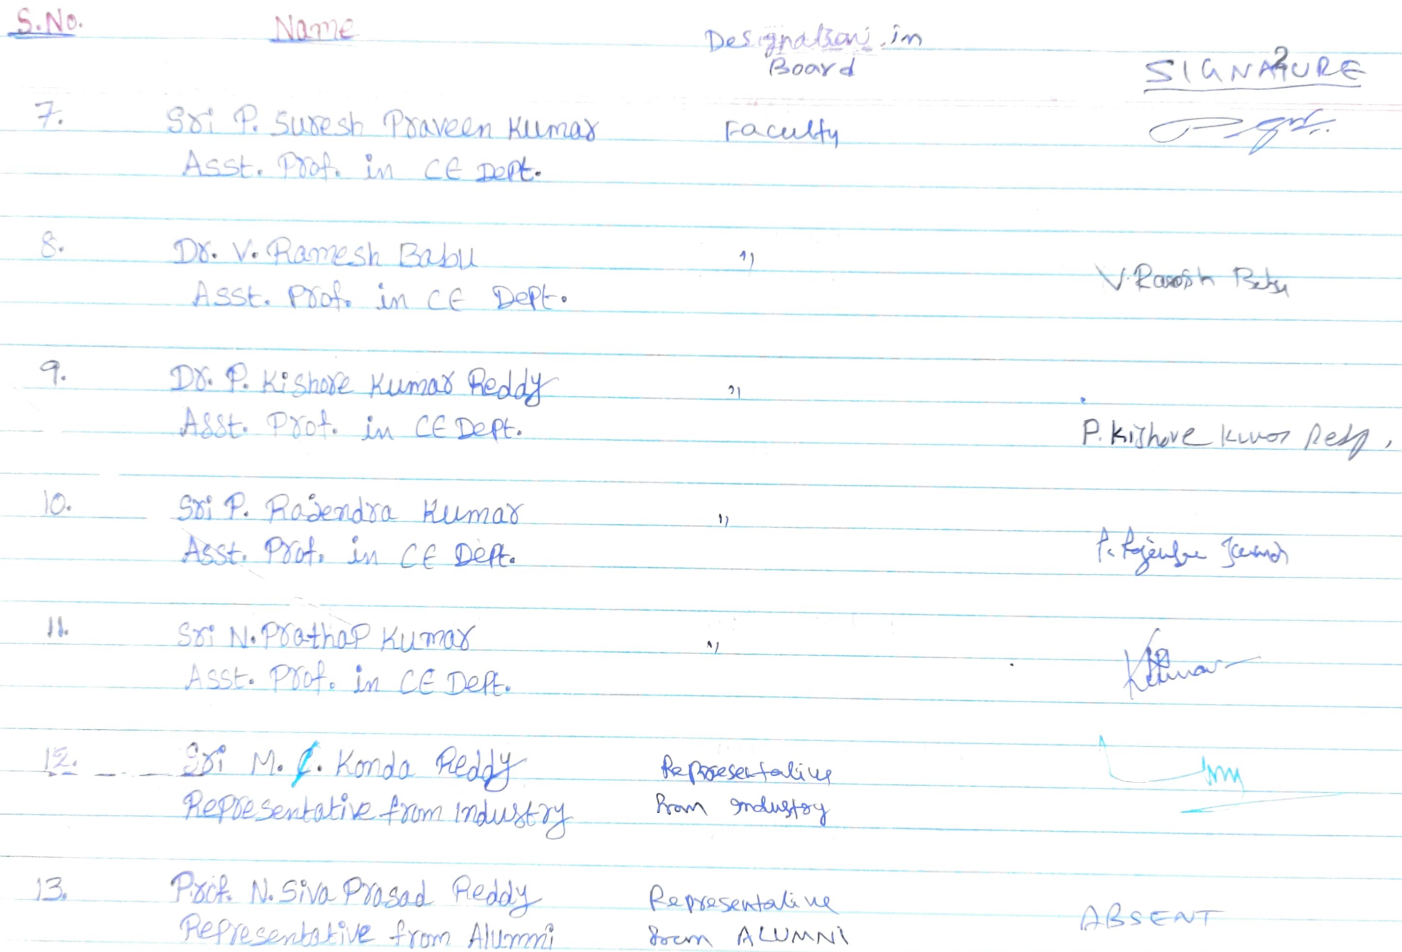 S.No. Name Designation in Board SIGNATURE
2
7. Sri P. Suresh Praveen Kumar Faculty
Asst. Prof. in CE Dept.
8. Dr. V. Ramesh Babu ,,
Asst. Prof. in CE Dept. V. Ramesh Babu
9. Dr. P. Kishore Kumar Reddy ,,
Asst. Prof. in CE Dept. P. Kishore Kumar Reddy
10. Sri P. Rajendra Kumar ,,
Asst. Prof. in CE Dept. P. Rajendra Kumar
11. Sri N. Prathap Kumar ,,
Asst. Prof. in CE Dept.
12. Sri M. C. Konda Reddy Representative
Representative from Industry from Industry
13. Prof. N. Siva Prasad Reddy Representative ABSENT
Representative from Alumni from ALUMNI